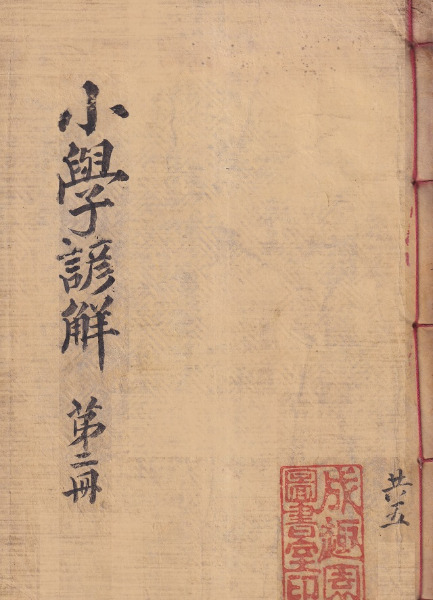 小學諺解 第二冊
共五
成趣園
圖書室印